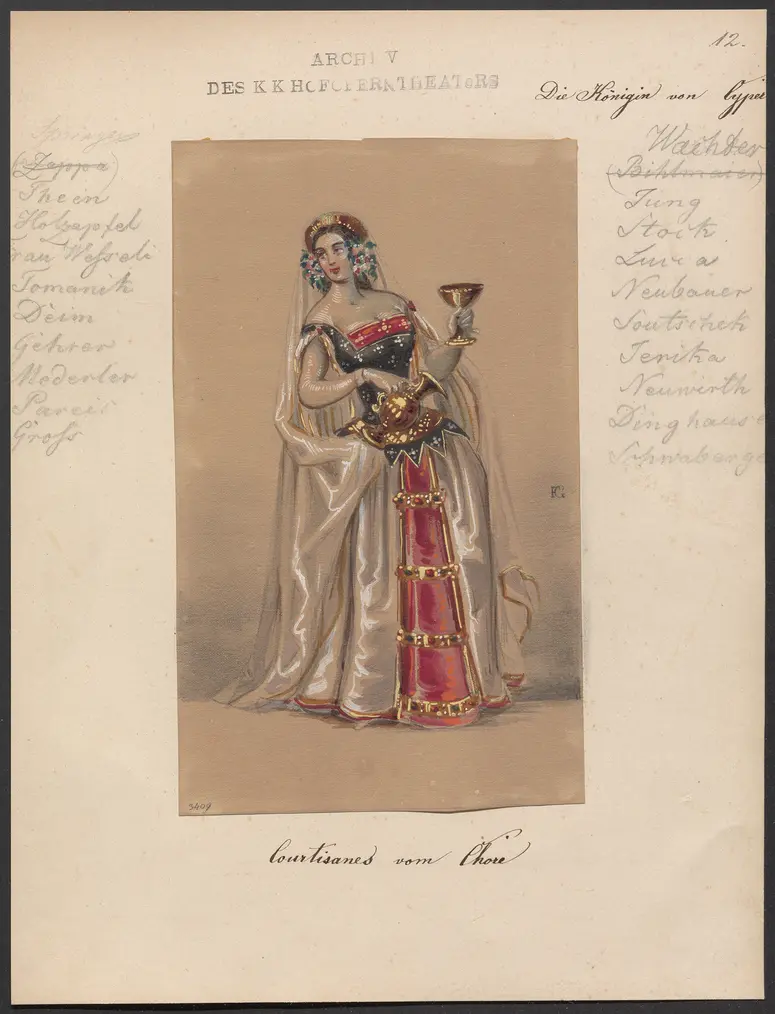 12.
ARCHIV
DES K K HOFOPERNTHEATERS
Die Königin von Cyper
Springer
(Zappa)
Thein
Holzapfel
rau Wessely
Tomanik
Deim
Gehrer
Mederler
Pareis
Gross
Wachter
(Bihlmaier)
Jung
Stock
Luca
Neubauer
Soutschek
Terika
Neuwirth
Dinghause
Schwaberge
FG
3409
Courtisanes vom Chore